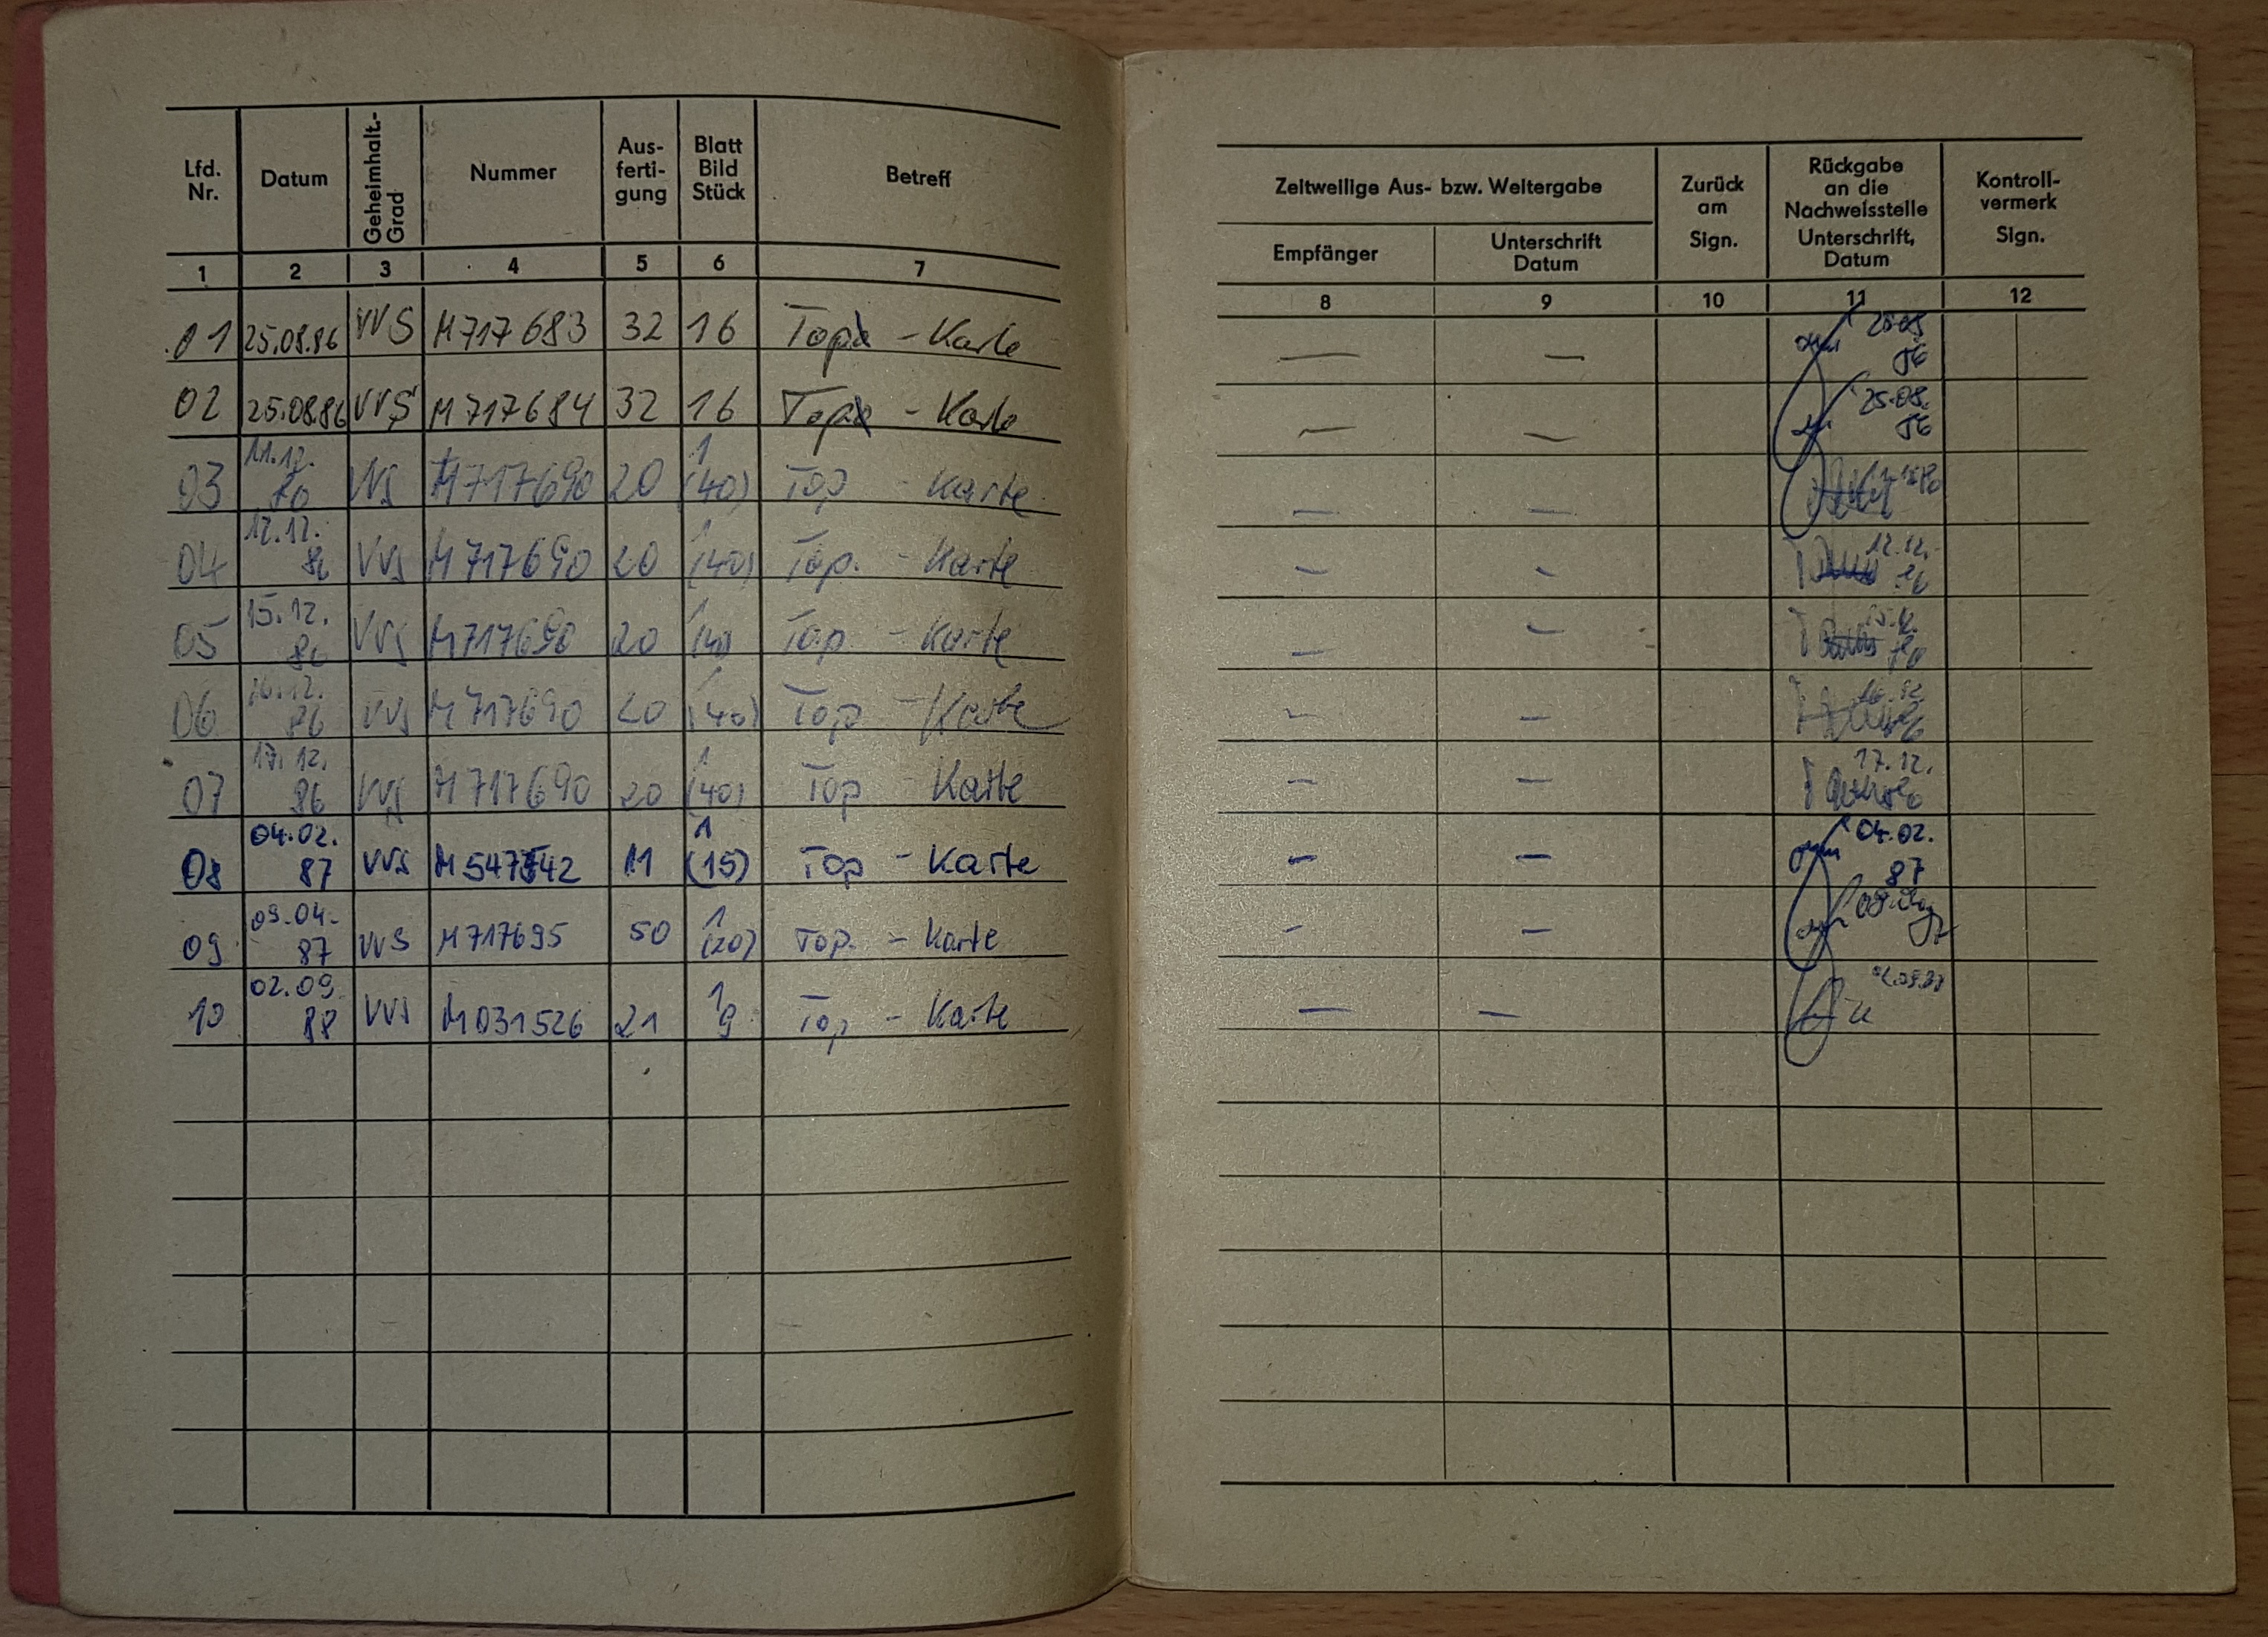 Lfd. Nr. Datum Geheimhalt.-Grad Nummer Aus-ferti-gung Blatt Bild Stück Betreff
1 2 3 4 5 6 7
01 25.08.86 VVS M717683 32 16 Top - Karte
02 25.08.86 VVS M717684 32 16 Top - Karte
03 11.12. VVS M717690 20 1 (40) Top - Karte
04 12.12. 86 VVS M717690 20 1 (40) Top. - Karte
05 15.12. 86 VVS M717690 20 1 (40) Top. - Karte
06 16.12. 86 VVS M717690 20 1 (40) Top - Karte
07 17.12. 86 VVS M717690 20 1 (40) Top - Karte
08 04.02. 87 VVS M547542 11 1 (15) Top - Karte
09 09.04. 87 VVS M717695 50 1 (20) Top. - Karte
10 02.09. 88 VVS M031526 21 1 9 Top - Karte
Zeitweilige Aus- bzw. Weitergabe
Empfänger
Unterschrift
Datum
Zurück
am
Sign.
Rückgabe
an die
Nachweisstelle
Unterschrift,
Datum
Kontroll-
vermerk
Sign.
8 9 10 11 12
— — 25.08. 86
— — 25.08. 86
— —
— — 12.12. 86
— — 15.12.
— — 16.12. 86
— — 17.12.
— — 04.02. 87
— —
— — 02.09.88